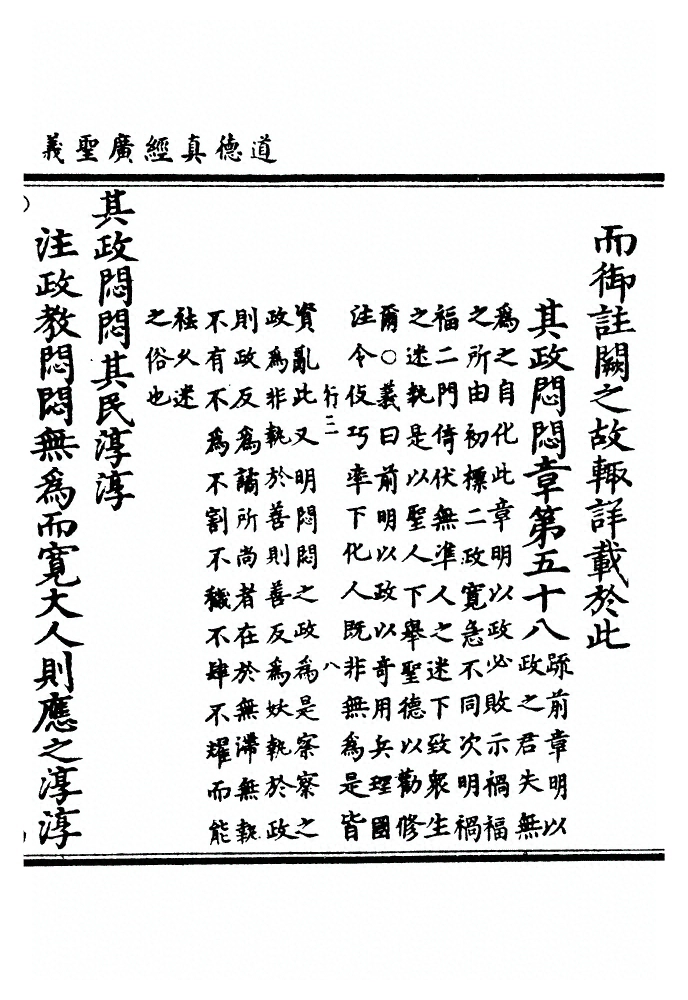 道德真經廣聖義
而御註闕之故輙詳載於此
其政悶悶章第五十八
疏前章明以
政之君失無
為之自化此章明以政必敗示禍福
之所由初標二政寬急不同次明禍
福二門倚伏無準人之迷下致衆生
之迷執是以聖人下舉聖德以勸修
爾○義曰前明以政以奇用兵理國
注令伎巧率下化人既非無為是皆
行三 八
資亂此又明悶悶之政為是察察之
政為非執於善則善反為妖執於政
則政反為譎所尚者在於無滯無執
不有不為不割不穢不肆不耀而能
祛久迷
之俗也
其政悶悶其民淳淳
注政教悶悶無為而寬大人則應之淳淳